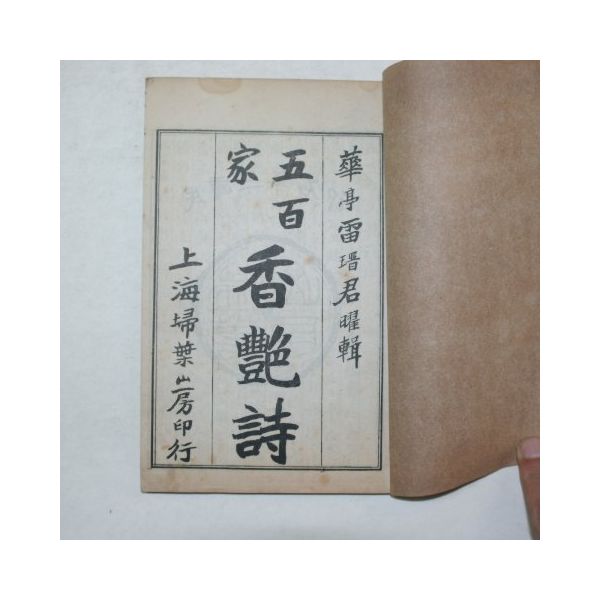 華亭雷瑨君曜輯
五百家香艷詩
上海掃葉山房印行